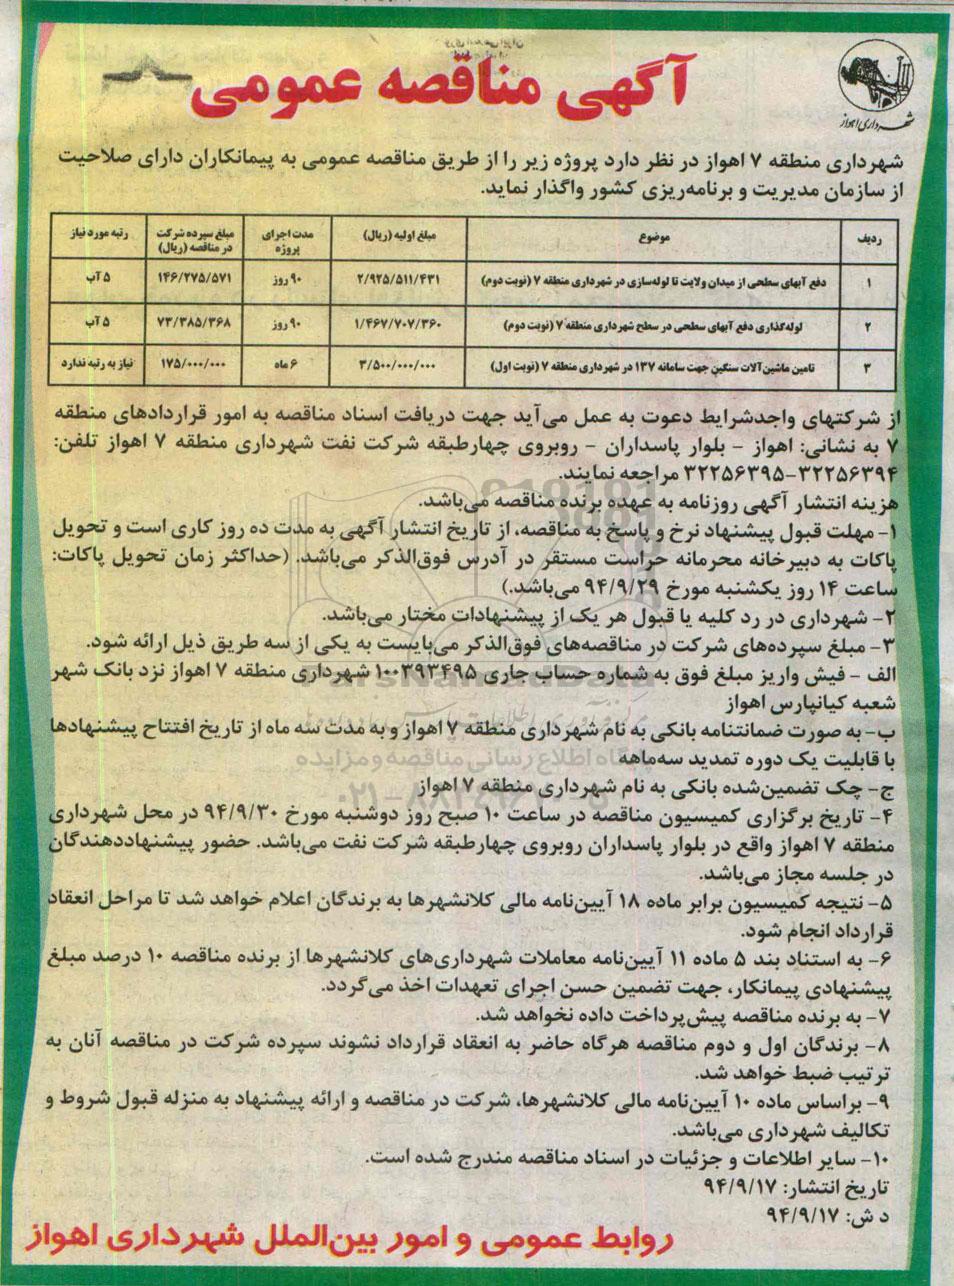 شهرداری اهواز
آگهی مناقصه عمومی
شهرداری منطقه ۷ اهواز در نظر دارد پروژه زیر را از طریق مناقصه عمومی به پیمانکاران دارای صلاحیت
از سازمان مدیریت و برنامه‌ریزی کشور واگذار نماید.
ردیف موضوع مبلغ اولیه (ریال) مدت اجرای پروژه مبلغ سپرده شرکت در مناقصه (ریال) رتبه مورد نیاز
۱ دفع آبهای سطحی از میدان ولایت تا لوله‌سازی در شهرداری منطقه ۷ (نوبت دوم) ۲/۹۲۵/۵۱۱/۴۳۱ ۹۰ روز ۱۴۶/۲۷۵/۵۷۱ ۵ آب
۲ لوله‌گذاری دفع آبهای سطحی در سطح شهرداری منطقه ۷ (نوبت دوم) ۱/۴۶۷/۷۰۷/۳۶۰ ۹۰ روز ۷۳/۳۸۵/۳۶۸ ۵ آب
۳ تامین ماشین‌آلات سنگین جهت سامانه ۱۳۷ در شهرداری منطقه ۷ (نوبت اول) ۳/۵۰۰/۰۰۰/۰۰۰ ۶ ماه ۱۷۵/۰۰۰/۰۰۰ نیاز به رتبه ندارد
از شرکتهای واجدشرایط دعوت به عمل می‌آید جهت دریافت اسناد مناقصه به امور قراردادهای منطقه
۷ به نشانی: اهواز - بلوار پاسداران - روبروی چهارطبقه شرکت نفت شهرداری منطقه ۷ اهواز تلفن:
۳۲۲۵۶۳۹۴-۳۲۲۵۶۳۹۵ مراجعه نمایند.
هزینه انتشار آگهی روزنامه به عهده برنده مناقصه می‌باشد.
۱- مهلت قبول پیشنهاد نرخ و پاسخ به مناقصه، از تاریخ انتشار آگهی به مدت ده روز کاری است و تحویل
پاکات به دبیرخانه محرمانه حراست مستقر در آدرس فوق‌الذکر می‌باشد. (حداکثر زمان تحویل پاکات:
ساعت ۱۴ روز یکشنبه مورخ ۹۴/۹/۲۹ می‌باشد.)
۲- شهرداری در رد کلیه یا قبول هر یک از پیشنهادات مختار می‌باشد.
۳- مبلغ سپرده‌های شرکت در مناقصه‌های فوق‌الذکر می‌بایست به یکی از سه طریق ذیل ارائه شود.
الف - فیش واریز مبلغ فوق به شماره حساب جاری ۱۰۰۳۹۳۴۹۵ شهرداری منطقه ۷ اهواز نزد بانک شهر
شعبه کیانپارس اهواز
ب- به صورت ضمانتنامه بانکی به نام شهرداری منطقه ۷ اهواز و به مدت سه ماه از تاریخ افتتاح پیشنهادها
با قابلیت یک دوره تمدید سه‌ماهه
ج- چک تضمین‌شده بانکی به نام شهرداری منطقه ۷ اهواز
۴- تاریخ برگزاری کمیسیون مناقصه در ساعت ۱۰ صبح روز دوشنبه مورخ ۹۴/۹/۳۰ در محل شهرداری
منطقه ۷ اهواز واقع در بلوار پاسداران روبروی چهارطبقه شرکت نفت می‌باشد. حضور پیشنهاددهندگان
در جلسه مجاز می‌باشد.
۵- نتیجه کمیسیون برابر ماده ۱۸ آیین‌نامه مالی کلانشهرها به برندگان اعلام خواهد شد تا مراحل انعقاد
قرارداد انجام شود.
۶- به استناد بند ۵ ماده ۱۱ آیین‌نامه معاملات شهرداری‌های کلانشهرها از برنده مناقصه ۱۰ درصد مبلغ
پیشنهادی پیمانکار، جهت تضمین حسن اجرای تعهدات اخذ می‌گردد.
۷- به برنده مناقصه پیش‌پرداخت داده نخواهد شد.
۸- برندگان اول و دوم مناقصه هرگاه حاضر به انعقاد قرارداد نشوند سپرده شرکت در مناقصه آنان به
ترتیب ضبط خواهد شد.
۹- براساس ماده ۱۰ آیین‌نامه مالی کلانشهرها، شرکت در مناقصه و ارائه پیشنهاد به منزله قبول شروط و
تکالیف شهرداری می‌باشد.
۱۰- سایر اطلاعات و جزئیات در اسناد مناقصه مندرج شده است.
تاریخ انتشار: ۹۴/۹/۱۷
د ش: ۹۴/۹/۱۷
روابط عمومی و امور بین‌الملل شهرداری اهواز